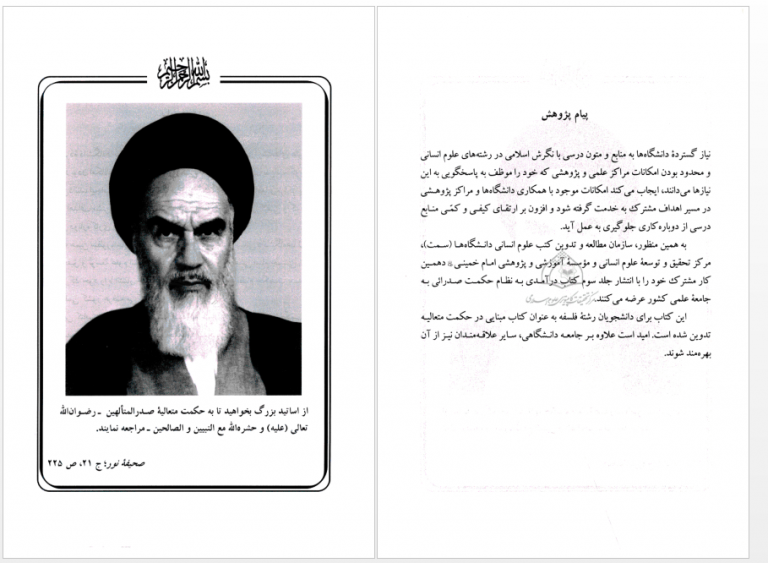 بسم الله الرحمن الرحیم
از اساتید بزرگ بخواهید تا به حکمت متعالیهٔ صدرالمتألهین ـ رضوان‌الله
تعالی (علیه) و حشره‌الله مع النبیین و الصالحین ـ مراجعه نمایند.
صحیفهٔ نور؛ ج ۲۱، ص ۲۲۵
پیام پژوهش
نیاز گستردهٔ دانشگاه‌ها به منابع و متون درسی با نگرش اسلامی در رشته‌های علوم انسانی
و محدود بودن امکانات مراکز علمی و پژوهشی که خود را موظف به پاسخگویی به این
نیازها می‌دانند، ایجاب می‌کند امکانات موجود با همکاری دانشگاه‌ها و مراکز پژوهشی
در مسیر اهداف مشترک به خدمت گرفته شود و افزون بر ارتقای کیفی و کمّی منابع
درسی از دوباره‌کاری جلوگیری به عمل آید.
به همین منظور، سازمان مطالعه و تدوین کتب علوم انسانی دانشگاه‌ها (سمت)،
مرکز تحقیق و توسعهٔ علوم انسانی و مؤسسهٔ آموزشی و پژوهشی امام خمینی دهمین
کار مشترک خود را با انتشار جلد سوم کتاب درآمدی به نظام حکمت صدرائی به
جامعهٔ علمی کشور عرضه می‌کنند.
این کتاب برای دانشجویان رشتهٔ فلسفه به عنوان کتاب مبنایی در حکمت متعالیه
تدوین شده است. امید است علاوه بر جامعه دانشگاهی، سایر علاقه‌مندان نیز از آن
بهره‌مند شوند.